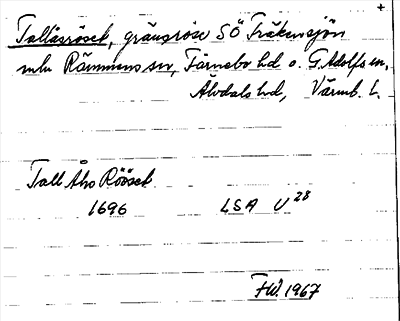 +
Tallåsröset, gränsröse SÖ Fräkensjön
mln Rämmens sn, Färnebo hd o. G. Adolfs sn,
Älvdals hd, Värml. l.
Tall Åhs Rööset
1696 LSA U 28
FW. 1967